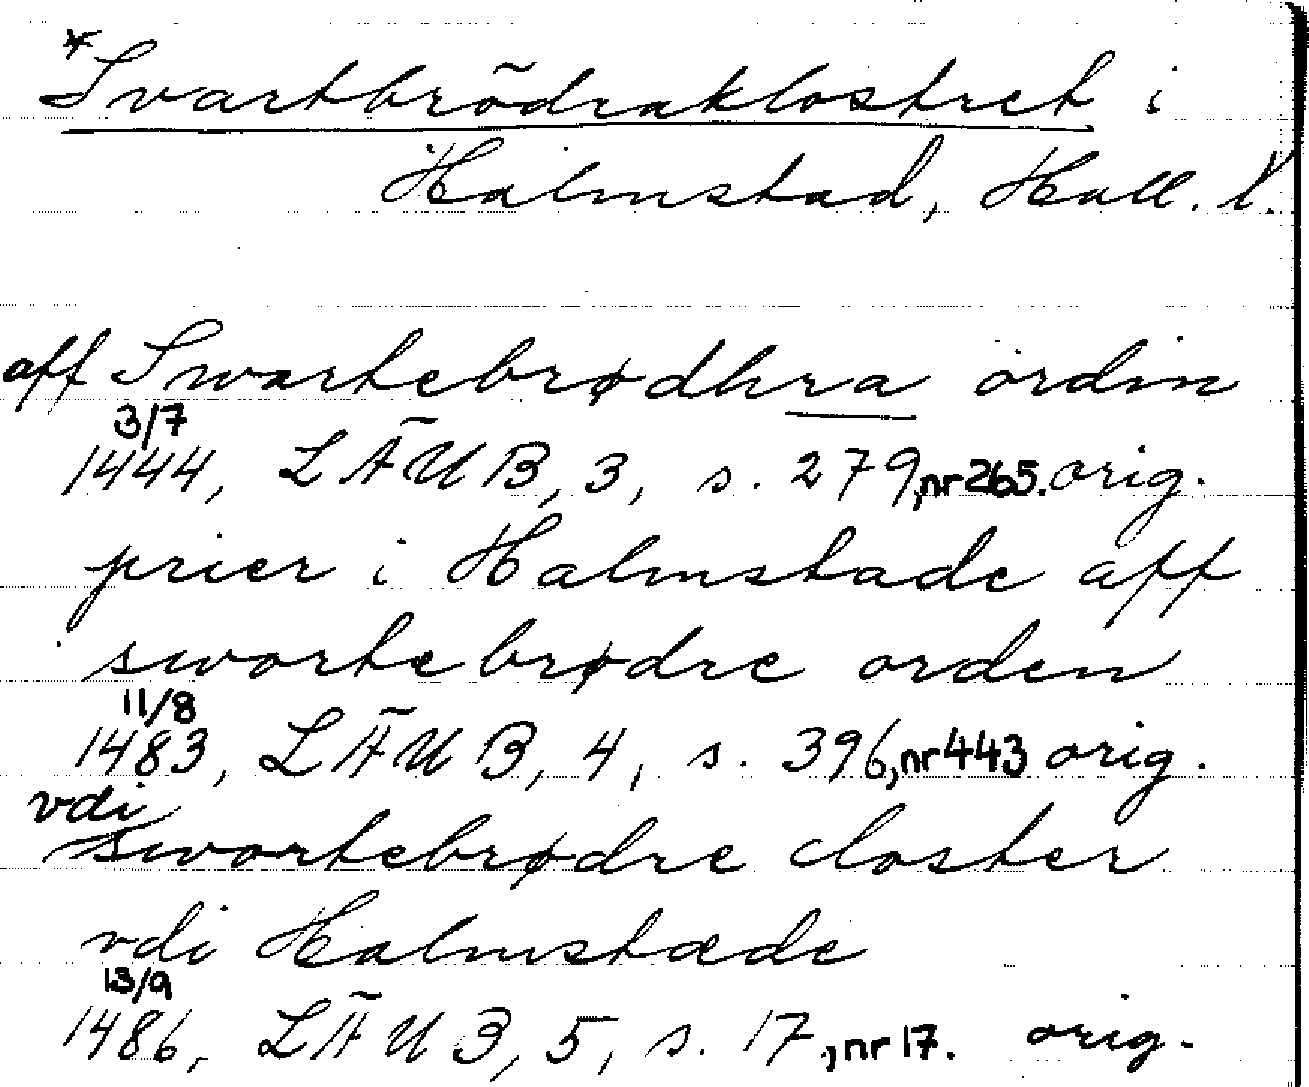 *Svartbrödraklostret i
Halmstad, Hall. l.
aff Swartebrødhra ordin
3/7
1444, LÄUB, 3, s. 279, nr 265. orig.
prier i Halmstade aff
swortebrødre orden
11/8
1483, LÄUB, 4, s. 396, nr 443 orig.
vdi
swortebrødre closter
vdi Halmstæde
13/9
1486, LÄUB, 5, s. 17, nr 17. orig.